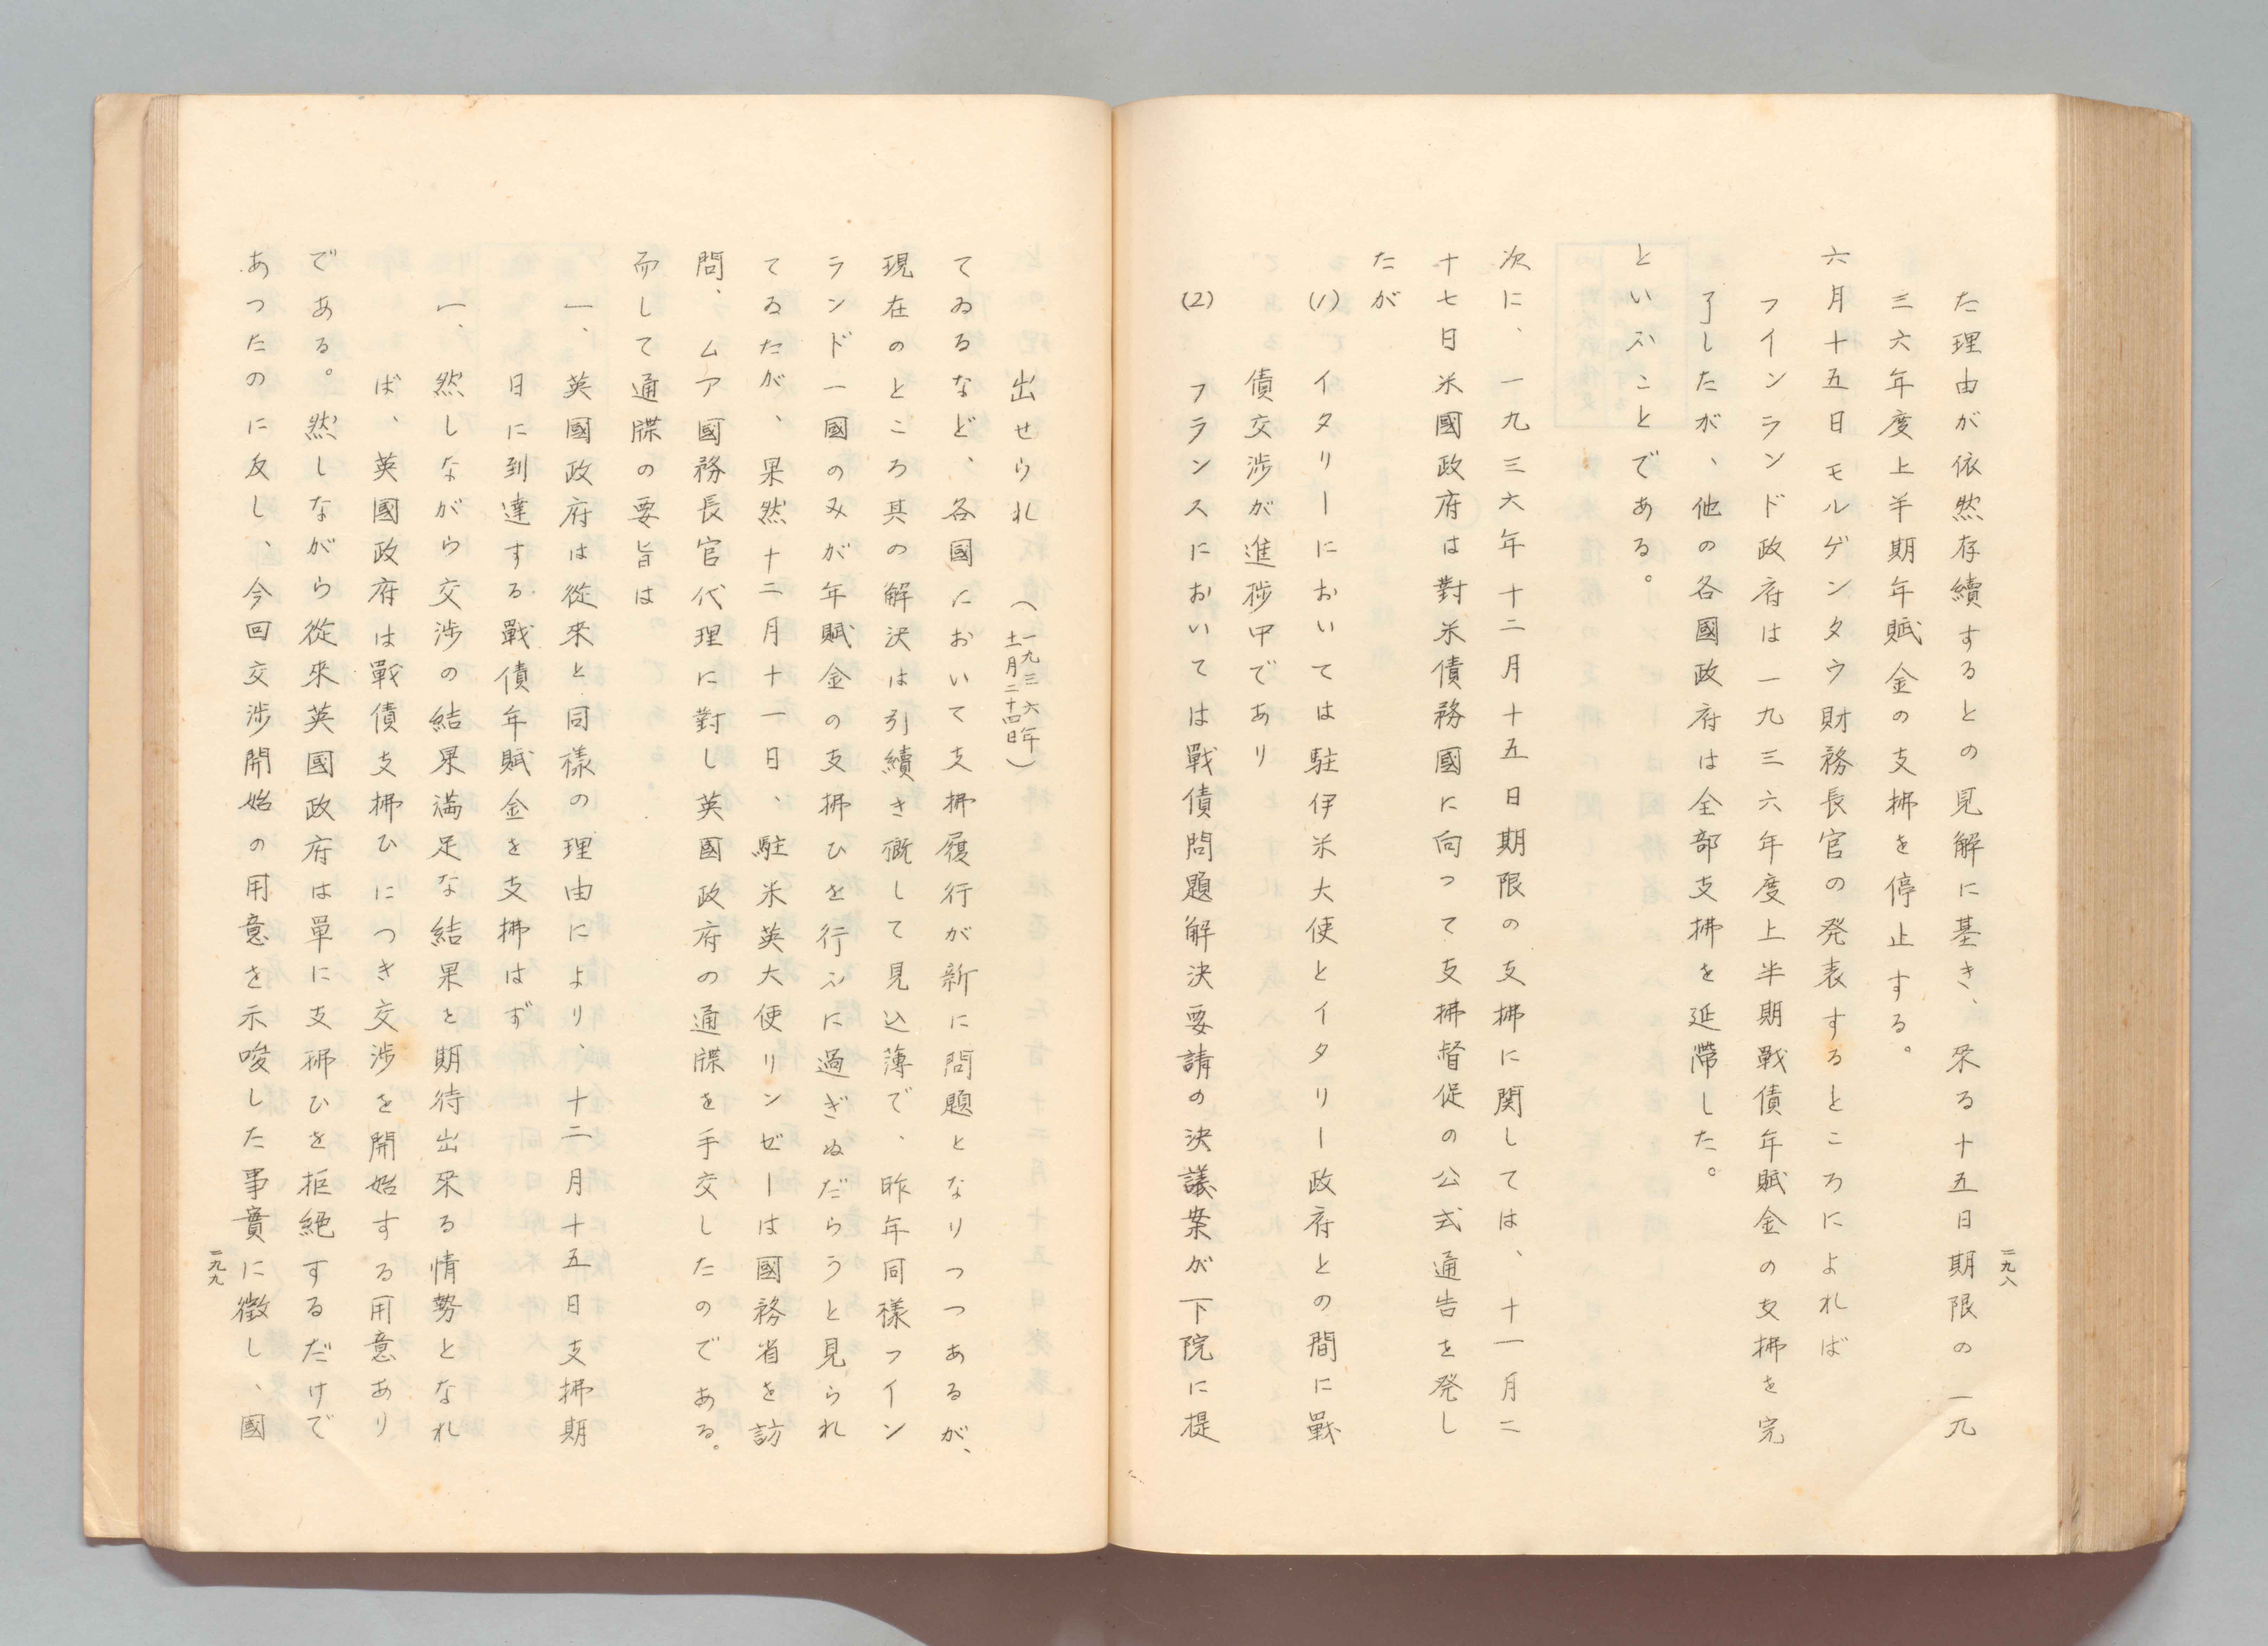 二九八
た理由が依然存續するとの見解に基き、來る十五日期限の一九
三六年度上半期年賦金の支拂を停止する。
六月十五日モルゲンタウ財務長官の発表するところによれば
フインランド政府は一九三六年度上半期戰債年賦金の支拂を完
了したが、他の各國政府は全部支拂を延滯した。
といふことである。
次に、一九三六年十二月十五日期限の支拂に関しては、十一月二
十七日米國政府は對米債務國に向つて支拂督促の公式通告を発し
たが
(1) イタリーにおいては駐伊米大使とイタリー政府との間に戰
債交渉が進捗中であり
(2) フランスにおいては戰債問題解決要請の決議案が下院に提
出せられ(一九三六年十一月二十四日)
てゐるなど、各國において支拂履行が新に問題となりつつあるが、
現在のところ其の解決は引續き概して見込薄で、昨年同樣フイン
ランド一國のみが年賦金の支拂ひを行ふに過ぎぬだらうと見られ
てゐたが、果然十二月十一日、駐米英大使リンゼーは國務省を訪
問、ムア國務長官代理に對し英國政府の通牒を手交したのである。
而して通牒の要旨は
一、英國政府は從來と同樣の理由により、十二月十五日支拂期
日に到達する戰債年賦金を支拂はず
一、然しながら交渉の結果満足な結果を期待出來る情勢となれ
ば、英國政府は戰債支拂ひにつき交渉を開始する用意あり
である。然しながら從來英國政府は單に支拂ひを拒絶するだけで
あつたのに反し、今回交渉開始の用意を示唆した事實に徴し、國
二九九